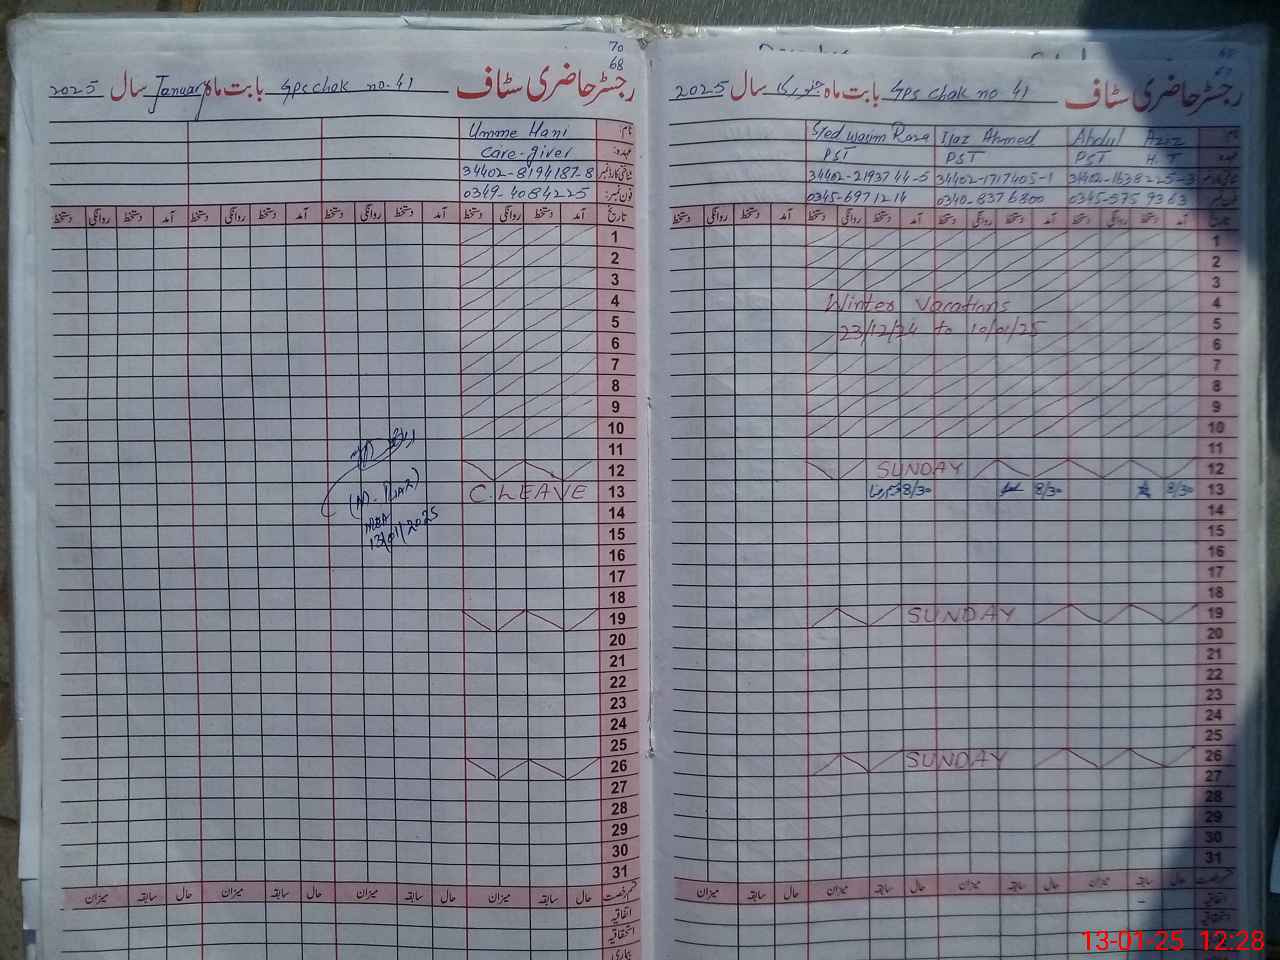 70
68
2025 سال January بابت ماہ Gps chak no. 41 رجسٹر حاضری سٹاف
Umme Hani نام:
Care-giver عہدہ:
34402-8194187-8 شناختی کارڈ نمبر
0349-4084225 فون نمبر:
دستخط روانگی دستخط آمد دستخط روانگی دستخط آمد دستخط روانگی دستخط آمد دستخط روانگی دستخط آمد تاریخ
1
2
3
4
5
6
7
8
9
10
11
12
C. LEAVE 13
14
15
16
17
18
19
20
21
22
23
24
25
26
27
28
29
30
31
13/01/2025
میزان سابقہ حال میزان سابقہ حال میزان سابقہ حال میزان سابقہ حال قسم رخصت
اتفاقیہ
استحقاقیہ
بیماری
2025 سال جنوری بابت ماہ Gps chak no 41 رجسٹر حاضری سٹاف
Syed Wasim Raza Ijaz Ahmed Abdul Aziz نام:
PST PST PST H.T عہدہ:
34402-2193744-5 34402-1717405-1 34402-1638225-3
0345-6971214 0340-8376800 0345-575 9363
دستخط روانگی دستخط آمد دستخط روانگی دستخط آمد دستخط روانگی دستخط آمد دستخط روانگی دستخط آمد تاریخ
1
2
3
Winter Vacations 4
23/12/24 to 10/01/25 5
6
7
8
9
10
11
SUNDAY 12
8/30 8/30 8/30 13
14
15
16
17
18
SUNDAY 19
20
21
22
23
24
25
SUNDAY 26
27
28
29
30
31
میزان سابقہ حال میزان سابقہ حال میزان سابقہ حال میزان سابقہ حال قسم رخصت
اتفاقیہ
استحقاقیہ
13-01-25 12:28